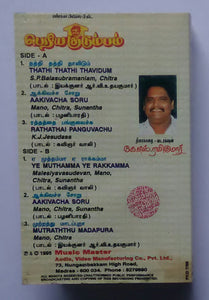 பெரிய குடும்பம்
SIDE - A
தத்தி தத்தி தாவிடும்
THATHI THATHI THAVIDUM
S.P.Balasubramaniam, Chitra
(பாடல் : இயக்குனர் ஆர்.வி.உதயகுமார்)
ஆக்கிவச்ச சோறு
AAKIVACHA SORU
Mano, Chitra, Sunantha
(பாடல் : பழனிபாரதி)
ரத்தத்தை பங்குவச்சு
RATHATHAI PANGUVACHU
K.J.Jesudass
(பாடல் : கவிஞர் வாலி)
SIDE - B
ஏ முத்தம்மா ஏ ராக்கம்மா
YE MUTHAMMA YE RAKKAMMA
Malesiyavasudevan, Mano, Chitra, Sunantha
(பாடல் : கவிஞர் வாலி)
ஆக்கிவச்ச சோறு
AAKIVACHA SORU
Mano, Chitra, Sunantha
(பாடல் : பழனிபாரதி)
முற்றத்து மாடப்புறா
MUTRATHTHU MADAPURA
Mano, Chitra
(பாடல் : இயக்குனர் ஆர்.வி.உதயகுமார்)
℗ © 1995 Music Master
Audio, Video Manufacturing Co., Pvt. Ltd.,
73, Nungambakkam High Road,
Madras - 600 034. Phone : 8279980